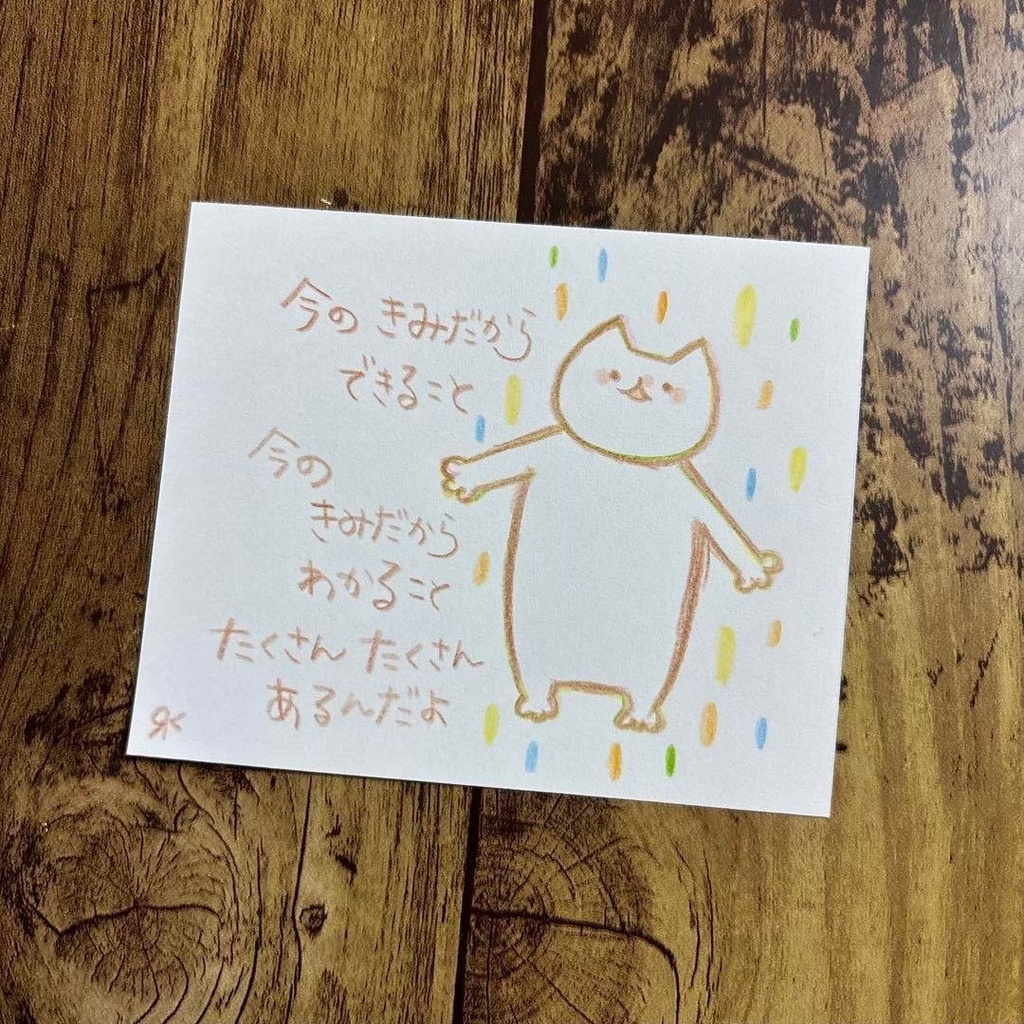 今の きみだから
できること
今の
きみだから
わかること
たくさん たくさん
あるんだよ